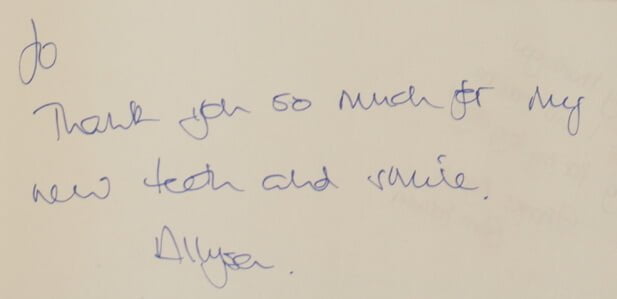 Jo
Thank you so much for my
new teeth and smile.
Allyson.